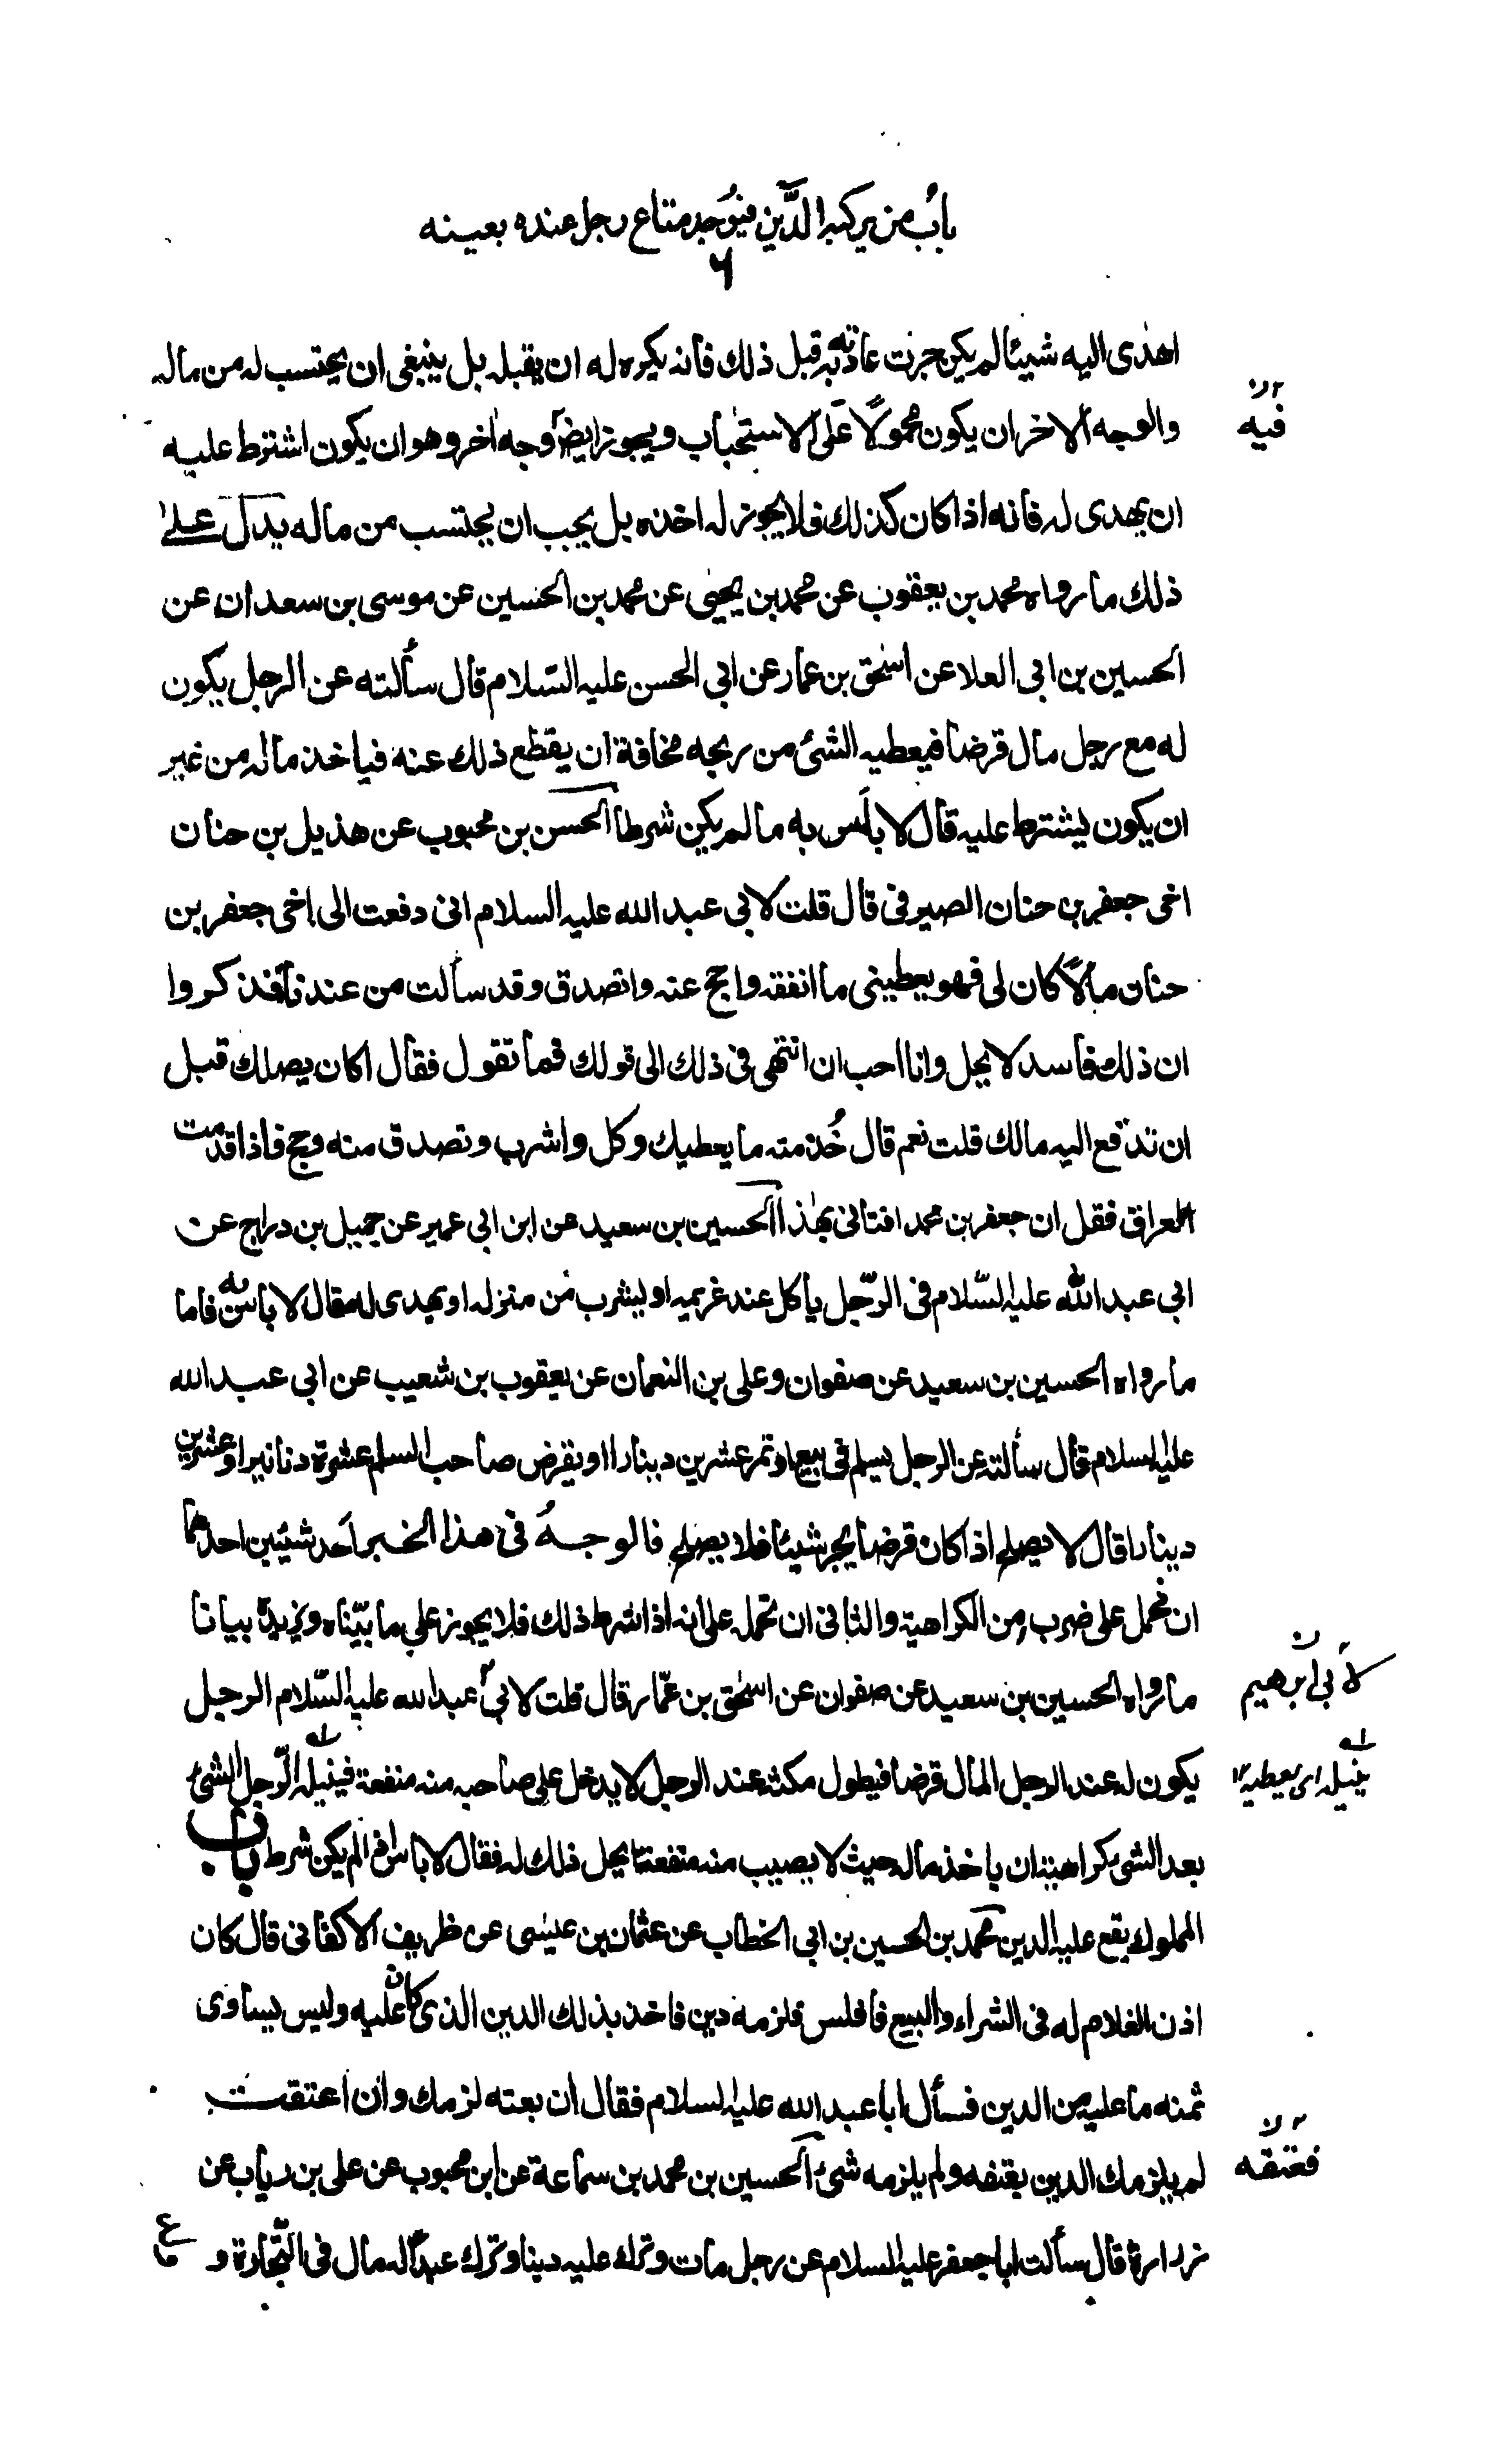 باب من يركبه الدين فيوجد متاع رجل عنده بعينه
٦
اهدى اليه شيئا لم يكن جرت عادته به قبل ذلك فانه يكره له ان يقبله بل ينبغى ان يحتسب له من ماله
والوجه الاخر ان يكون محمولا على الاستحباب ويجوز ايضا وجه اخر وهو ان يكون اشترط عليه
فيه
ان يهدى له فانه اذا كان كذلك فلا يجوز له اخذه بل يجب ان يحتسب من ماله يدل على
ذلك ما رواه محمد بن يعقوب عن محمد بن يحيى عن محمد بن الحسين عن موسى بن سعدان عن
الحسين بن ابى العلا عن اسحق بن عمار عن ابي الحسن عليه السلام قال سألته عن الرجل يكون
له مع رجل مال قرضا فيعطيه الشئ من ربحه مخافة ان يقطع ذلك عنه فياخذ ماله من غير
ان يكون يشترط عليه قال لا بأس به ما لم يكن شرطا الحسن بن محبوب عن هذيل بن حنان
اخى جعفر بن حنان الصيرفى قال قلت لابي عبد الله عليه السلام انى دفعت الى اخى جعفر بن
حنان مالا كان لى فهو يعطينى ما انفقه واحج عنه واتصدق وقد سألت من عندنا فذكروا
ان ذلك فاسد لا يحل وانا احب ان انتهى فى ذلك الى قولك فما تقول فقال اكان يصلك قبل
ان تدفع اليه مالك قلت نعم قال خُذ منه ما يعطيك وكل واشرب وتصدق منه وحج فاذا قدمت
العراق فقل ان جعفر بن محمد افتانى بهذا الحسين بن سعيد عن ابن ابي عمير عن جميل بن دراج عن
ابي عبد الله عليه السّلام فى الرّجل يأكل عند غريمه او يشرب من منزله او يهدى له فقال لا باس به فاما
ما رواه الحسين بن سعيد عن صفوان وعلى بن النعمان عن يعقوب بن شعيب عن ابي عبد الله
عليه السلام قال سألته عن الرجل يسلم فى بيع او تمر عشرين دينارا او يقرض صاحب السلم عشرة دنانير او عشرين
دينارا قال لا يصلح اذا كان قرضا يجر شيئا فلا يصلح فالوجهُ فى هذا الخبر احد شيئين احدهما
ان نحمل على ضرب من الكراهية والثانى ان نحمله على انه اذا شرط ذلك فلا يجوز على ما بيّناه ويزيده بيانا
ما رواه الحسين بن سعيد عن صفوان عن اسحق بن عمّار قال قلت لابي عبد الله عليه السّلام الرجل
لأبي ابرهيم
يكون له عند الرجل المال قرضا فيطول مكثه عند الرجل لا يدخل على صاحبه منه منفعة فينيله الرّجل الشئ
ينيله اى يعطيه
بعد الشئ كراهية ان ياخذ ماله حيث لا يصيب منه منفعة ايحل ذلك له فقال لا باس اذا لم يكن شرط باب
المملوك يقع عليه الدين محمد بن الحسين بن ابي الخطاب عن عثمان بن عيسى عن ظريف الاكفانى قال كان
اذن الغلام له فى الشراء والبيع فافلس فلزمه دين فاخذ بذلك الدين الذى كان عليه وليس يساوى
ثمنه ما عليه من الدين فسأل ابا عبد الله عليه السلام فقال ان بعته لزمك وان اعتقت
لم يلزمك الدين بعتقه ولم يلزمه شئ الحسين بن محمد بن سماعة عن ابن محبوب عن على بن رياب عن
فعتقه
زرارة قال سألت ابا جعفر عليه السلام عن رجل مات وترك عليه دينا وترك عبدًا له مال فى التّجارة و